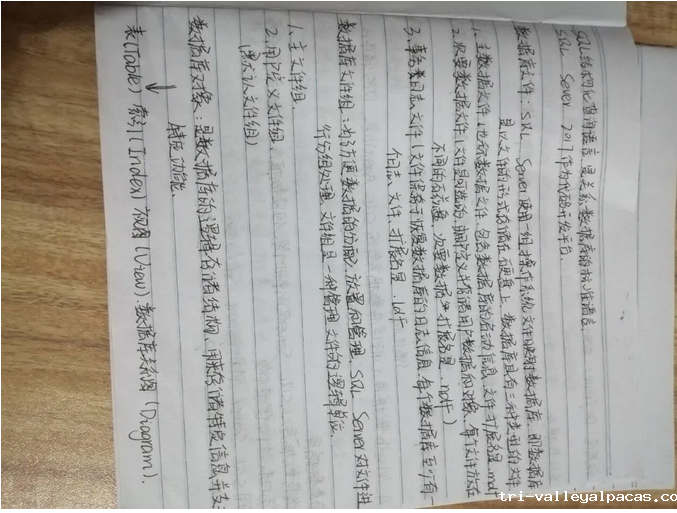 SQL结构化查询语言,是关系数据库的标准语言.
SQL Sever 2017作为代码开发平台.
数据库文件:SQL Sever使用一组操作系统文件映射数据库,即数据库
是以文件的形式存储在硬盘上,数据库具有三种类型的文件
1.主数据文件,也称数据文件,包含数据库的启动信息,文件扩展名是.mdf
2.次要数据文件(文件是可选的,由用户定义并存储用户数据和对象,每个文件放在
不同的存储盘,次要数据 扩展名是.ndf)
3.事务类日志文件(文件保存了恢复数据库的日志信息,每个数据库至少有一
个日志文件,扩展名是.ldf
数据库文件组:为了方便数据的分配、放置和管理、SQL Sever对文件进
行分组处理,文件组是一种管理文件的逻辑单位.
1.主文件组.
2.用户定义文件组.
(默认文件组)
数据库对象:是数据库的逻辑存储结构、用来存储特定信息并支
持特定功能.
↓
表(Table) 索引(Index) 视图(View).数据库关系图(Diagram).
tri-valleyalpacas.com